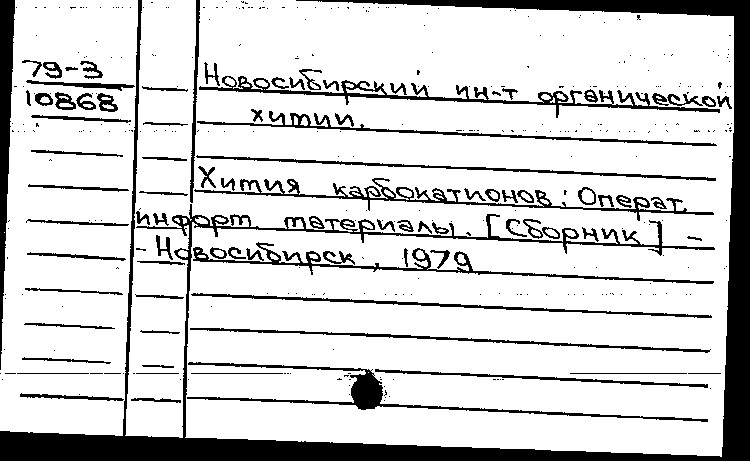 79-3
10868
Новосибирский ин-т органической
химии.
Химия карбокатионов: Операт.
информ. материалы. [Сборник] -
- Новосибирск, 1979